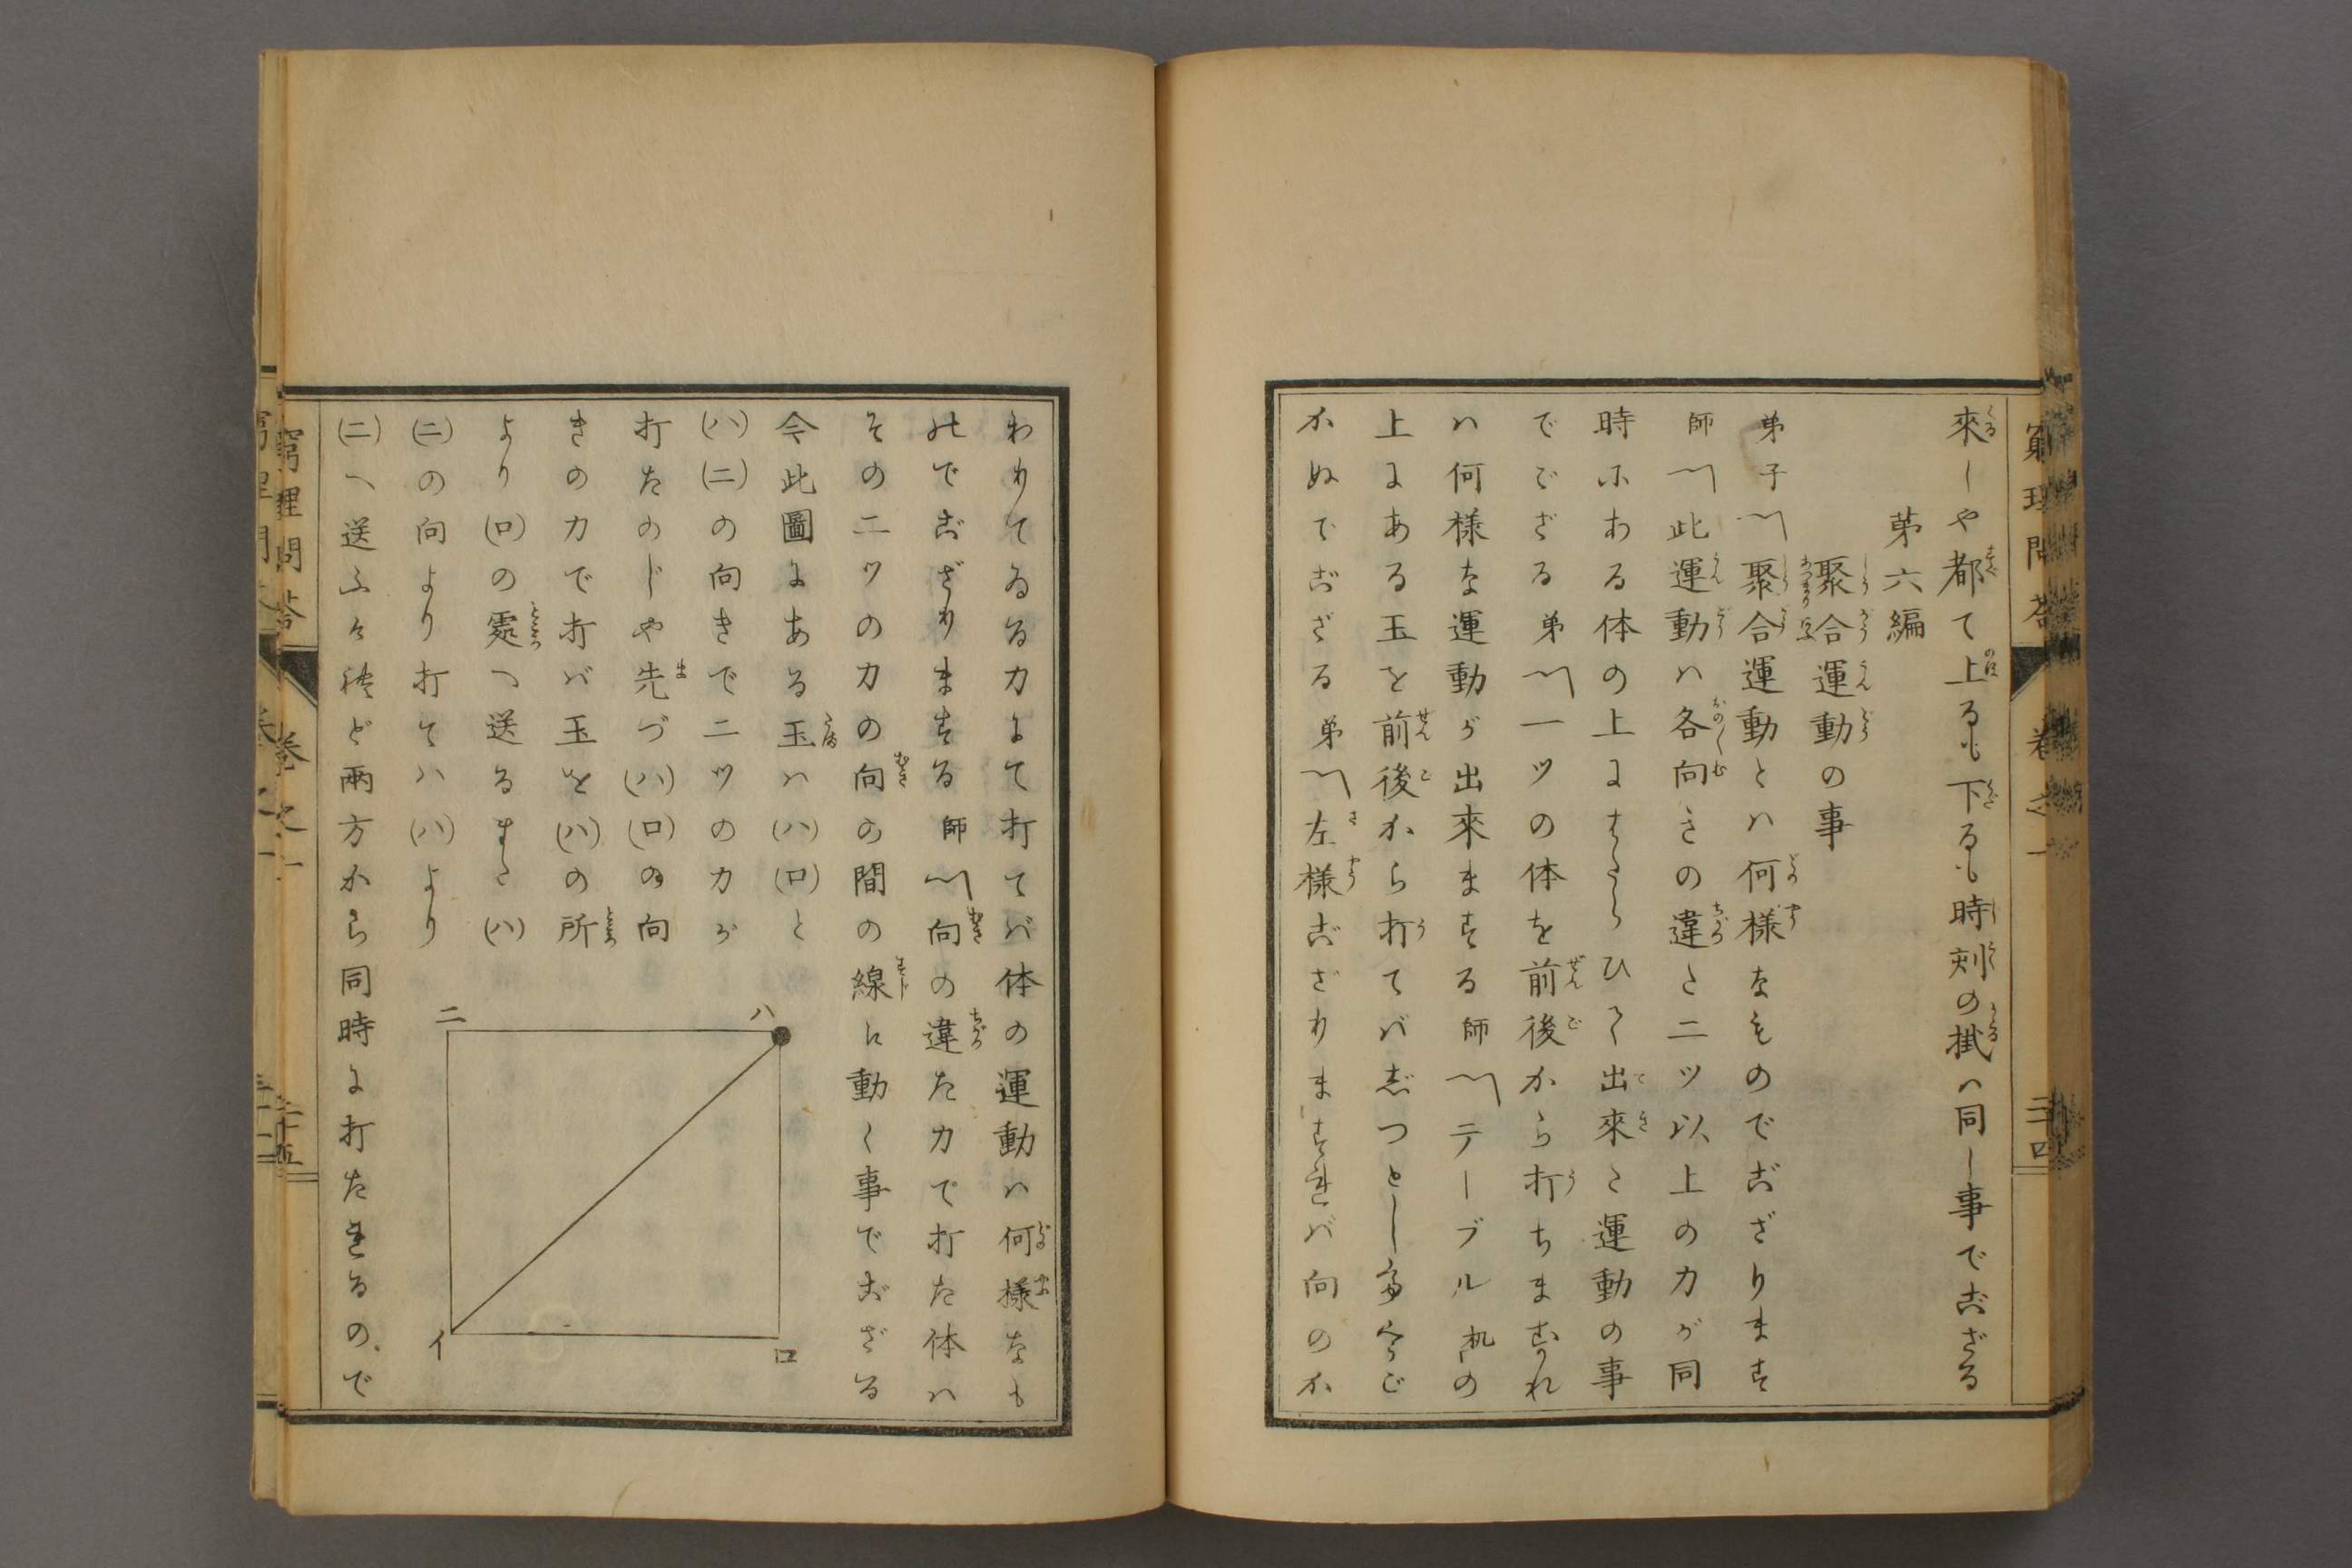 窮理問答 卷之一 三十四
來しや都て上るも下るも時刻の掛ハ同し事でござる
第六編
聚合運動の事
弟子〽聚合運動とハ何様なものでござります
師〽此運動ハ各向きの違た二ツ以上の力が同
時にある体の上にはたらひて出來た運動の事
でござる 弟〽一ツの体を前後から打ちますれ
ハ何様な運動が出來まする 師〽テーブル 机 の
上にある玉を前後から打てバじつとして
かぬでござる 弟〽左様ござりますれバ向のか
わりてゐる力にて打てバ体の運動ハ何様なも
のでござりまする 師〽向の違た力で打た体ハ
その二ツの力の向の間の線に動く事でござる
今此圖にある玉ハ(ハ)(ロ)と
(ハ)(ニ)の向きで二ツの力が
打たのじや先づ(ハ)(ロ)の向
きの力で打バ玉を(ハ)の所
より(ロ)の處へ送るまた(ハ)
(ニ)の向より打てハ(ハ)より
(ニ)へ送ふけれど兩方から同時に打たれるので
ニ
ハ
イ
ロ
窮理問答 卷之一 三十五